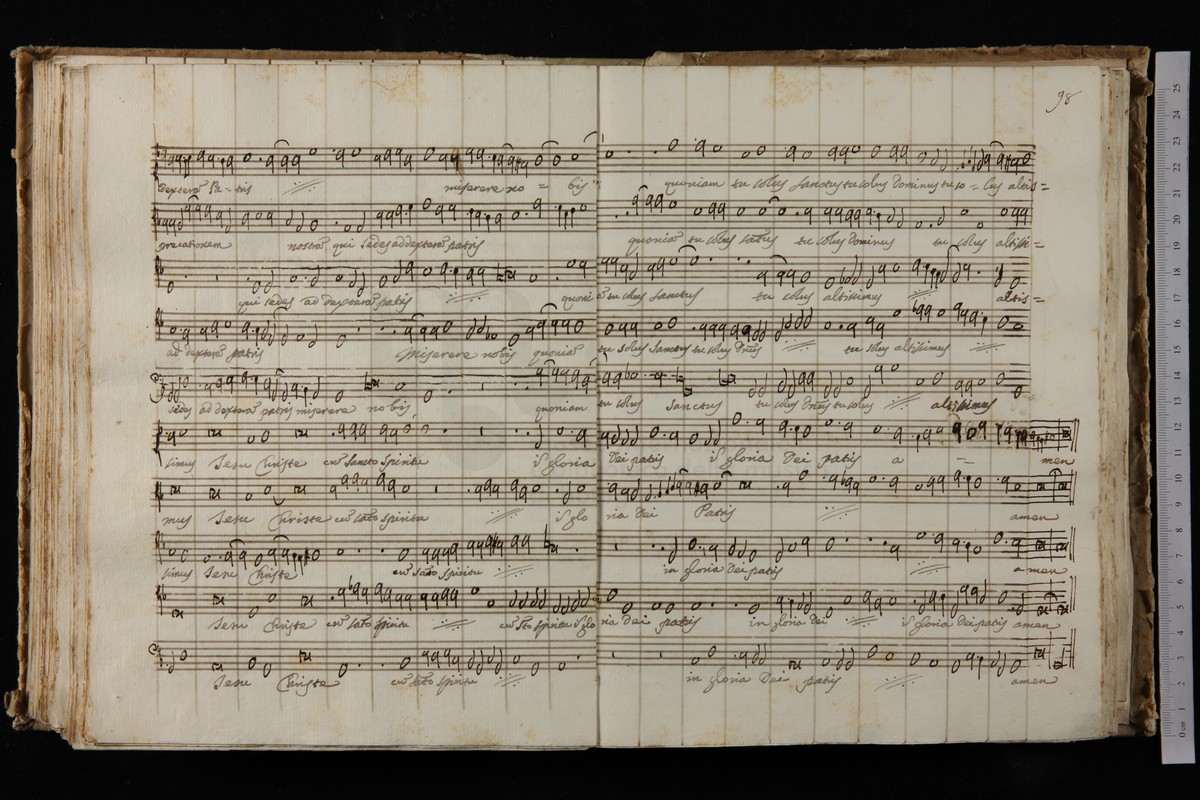 98
dexterã Pa = tis miserere no = bis quoniam tu solus sanctus tu solus Dominus tu so = lus altis =
precationem nostrã qui sedes ad dexterã patris quoniã tu solus sãtus tu solus Dominus tu solus altissi =
qui sedes ad dexterã patris quoniã tu solus sanctus tu solus altissimus altis =
ad dexterã patris Miserere nobis quoniã tu solus sanctus tu solus Dñus tu solus altissimus
sedes ad dexterã patris miserere nobis quoniam tu solus sanctus tu solus Dñus tu solus altissimus
simus Jesu Christe cũ sancto spiritu ĩ gloria Dei patris ĩ gloria Dei patris a = men
mus Jesu Christe cũ sãto spiritu ĩ glo ria Dei Patris amen
simus Jesu Christe cũ sãto spiritu in gloria Dei patris amen
Jesu Christe cũ sãto spiritu cũ sto spiritu ĩ glo ria Dei patris in gloria Dei ĩ gloria Dei patris amen
Jesu Christe cũ sãto spiritu in gloria Dei patris amen
0 cm 1 2 3 4 5 6 7 8 9 10 11 12 13 14 15 16 17 18 19 20 21 22 23 24 25